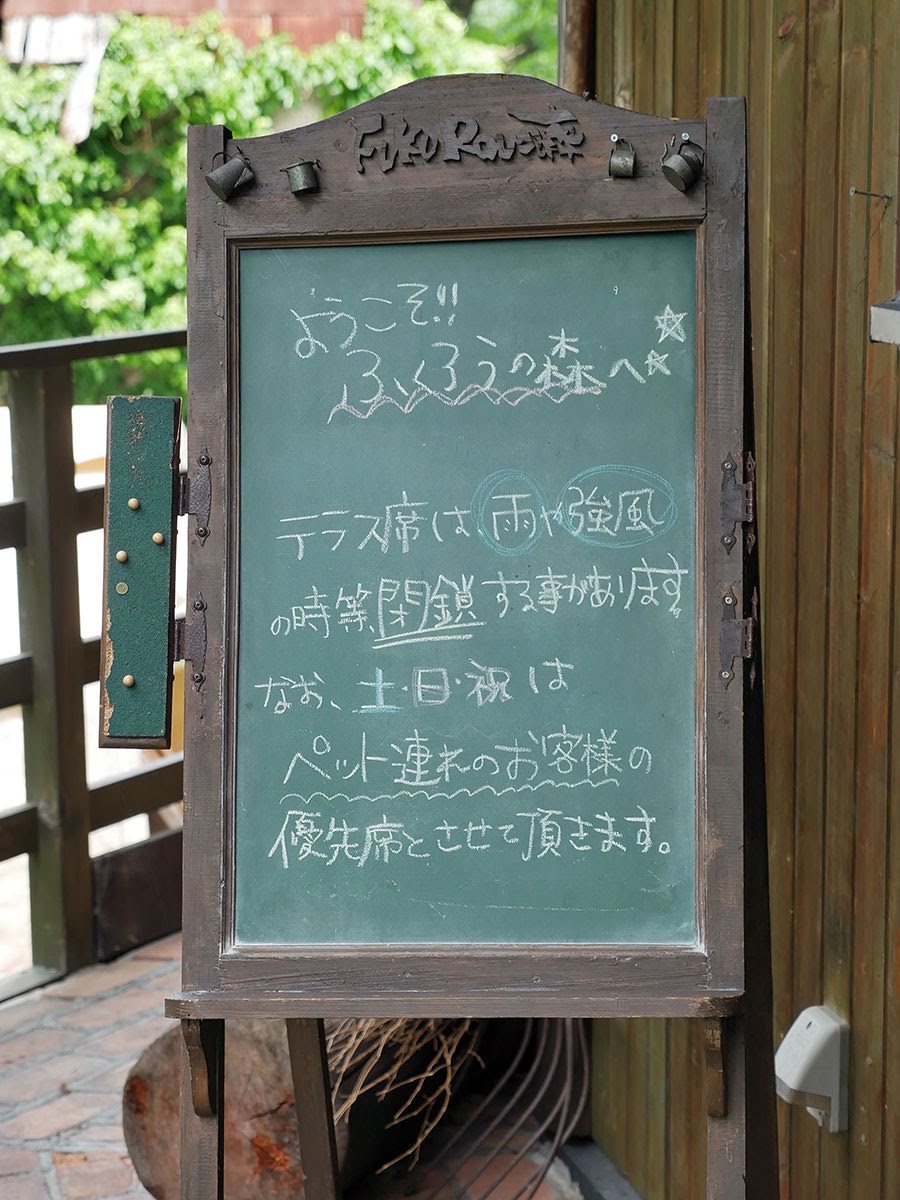 FUKU ROUの森
ようこそ!!
ふくろうの森へ☆☆
テラス席は雨や強風
の時等、閉鎖する事があります。
なお、土・日・祝は
ペット連れのお客様の
優先席とさせて頂きます。